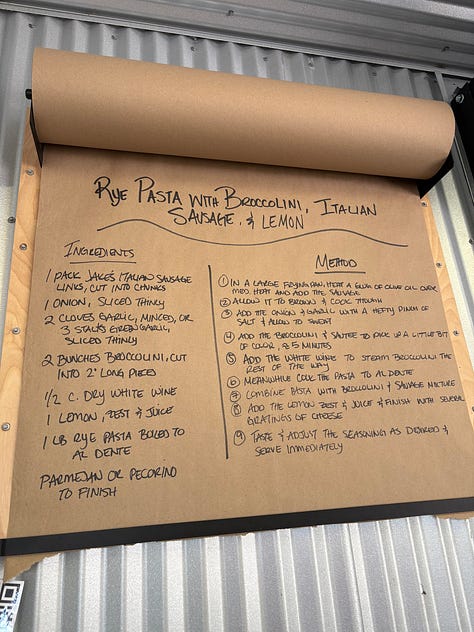 Rye Pasta with Broccolini, Italian
Sausage, & Lemon
Ingredients
1 pack Jake's Italian Sausage
links, cut into chunks
1 onion, sliced thinly
2 cloves garlic, minced, or
3 stalks green garlic,
sliced thinly
2 bunches broccolini, cut
into 2" long pieces
1/2 c. dry white wine
1 lemon, zest & juice
1 lb rye pasta boiled to
al dente
Parmesan or Pecorino
to finish
Method
① In a large frying pan, heat a glug of olive oil over
med. heat and add the sausage
② Allow it to brown & cook through
③ Add the onion & garlic with a hefty pinch of
salt & allow to sweat
④ Add the broccolini & sautee to pick up a little bit
of color, ≈ 5 minutes
⑤ Add the white wine to steam broccolini the
rest of the way
⑥ Meanwhile cook the pasta to al dente
⑦ Combine pasta with broccolini & sausage mixture
⑧ Add the lemon zest & juice & finish with several
gratings of cheese
⑨ Taste & adjust the seasoning as desired &
serve immediately